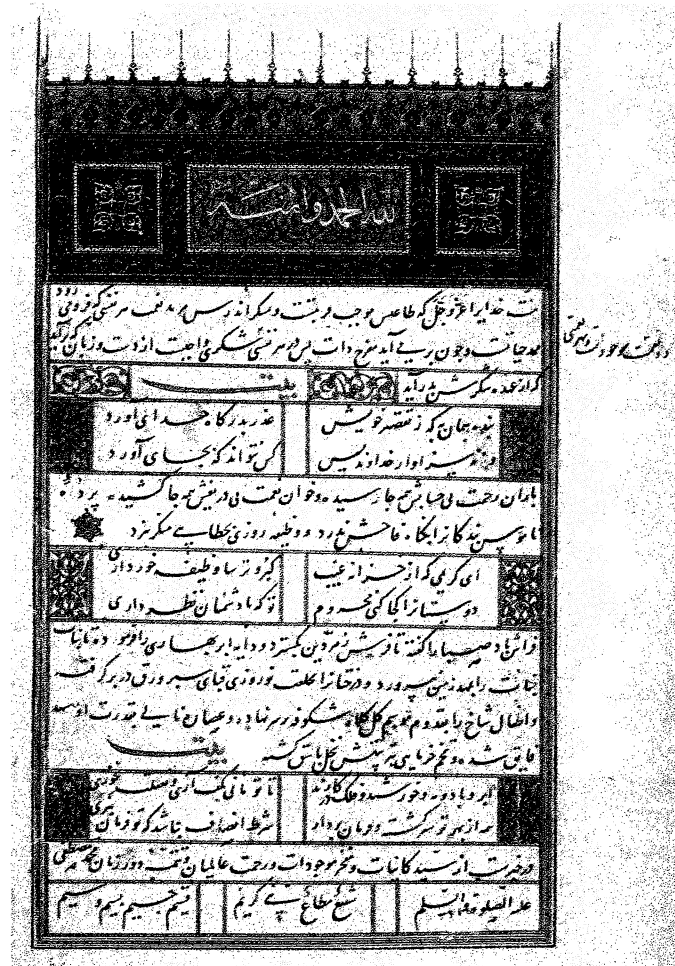 لله الحمد والمنة
منت خدایرا عز و جل که طاعتش موجب قربتست و بشکر اندرش مزید نعمت هر نفسی که فرو می رود
ممد حیاتست و چون بر می آید مفرح ذات پس در هر نفسی شکری واجبست از دست و زبان که برآید
کز عهده شکرش بدر آید بیت
بنده همان به که ز تقصیر خویش عذر بدرگاه خدای آورد
ورنه سزاوار خداوندیش کس نتواند که بجای آورد
باران رحمت بی حسابش همه جا رسیده و خوان نعمت بی دریغش همه جا کشیده پرده
ناموس بندکانرا بگناه فاحش ندرد و وظیفه روزی بخطای منکر نبرد
ای کریمی که از خزانه غیب گبر و ترسا وظیفه خور داری
دوستانرا کجا کنی محروم تو که با دشمنان نظر داری
فراش باد صبا را گفته تا فرش زمردین بگسترد و دایه ابر بهاری را فرموده تا بنات
نبات را در مهد زمین بپرورد و درختانرا بخلعت نوروزی قبای سبز ورق در بر گرفته
و اطفال شاخ را بقدوم موسم گل کلاه شکوفه بر سر نهاده و عصاره نایی بقدرت او شهد
فایق شده و تخم خرمایی بتربیتش نخل باسق گشته بیت
ابر و باد و مه و خورشید و فلک در کارند تا تو نانی بکف آری و بغفلت نخوری
همه از بهر تو سرگشته و فرمان بردار شرط انصاف نباشد که تو فرمان نبری
در خبرست از سید کاینات و مفخر موجودات و رحمت عالمیان و تتمه دور زمان محمد مصطفی
علیه الصلوة والسلم شفیع مطاع نبی کریم قسیم جسیم نسیم وسیم